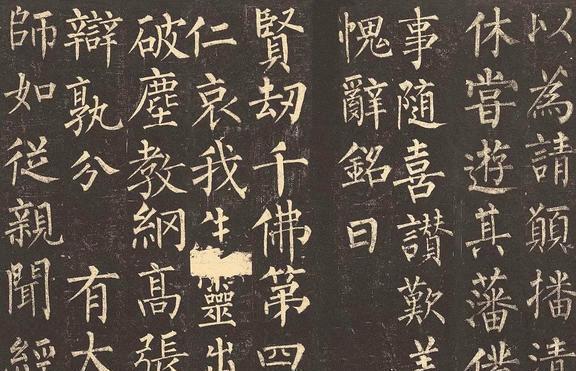 以為請願播清
休嘗遊其藩備
事隨喜讚歎
愧辭銘曰
賢劫千佛第四
仁哀我生靈出
破塵教綱高張
辯孰分有大
師如從親聞經